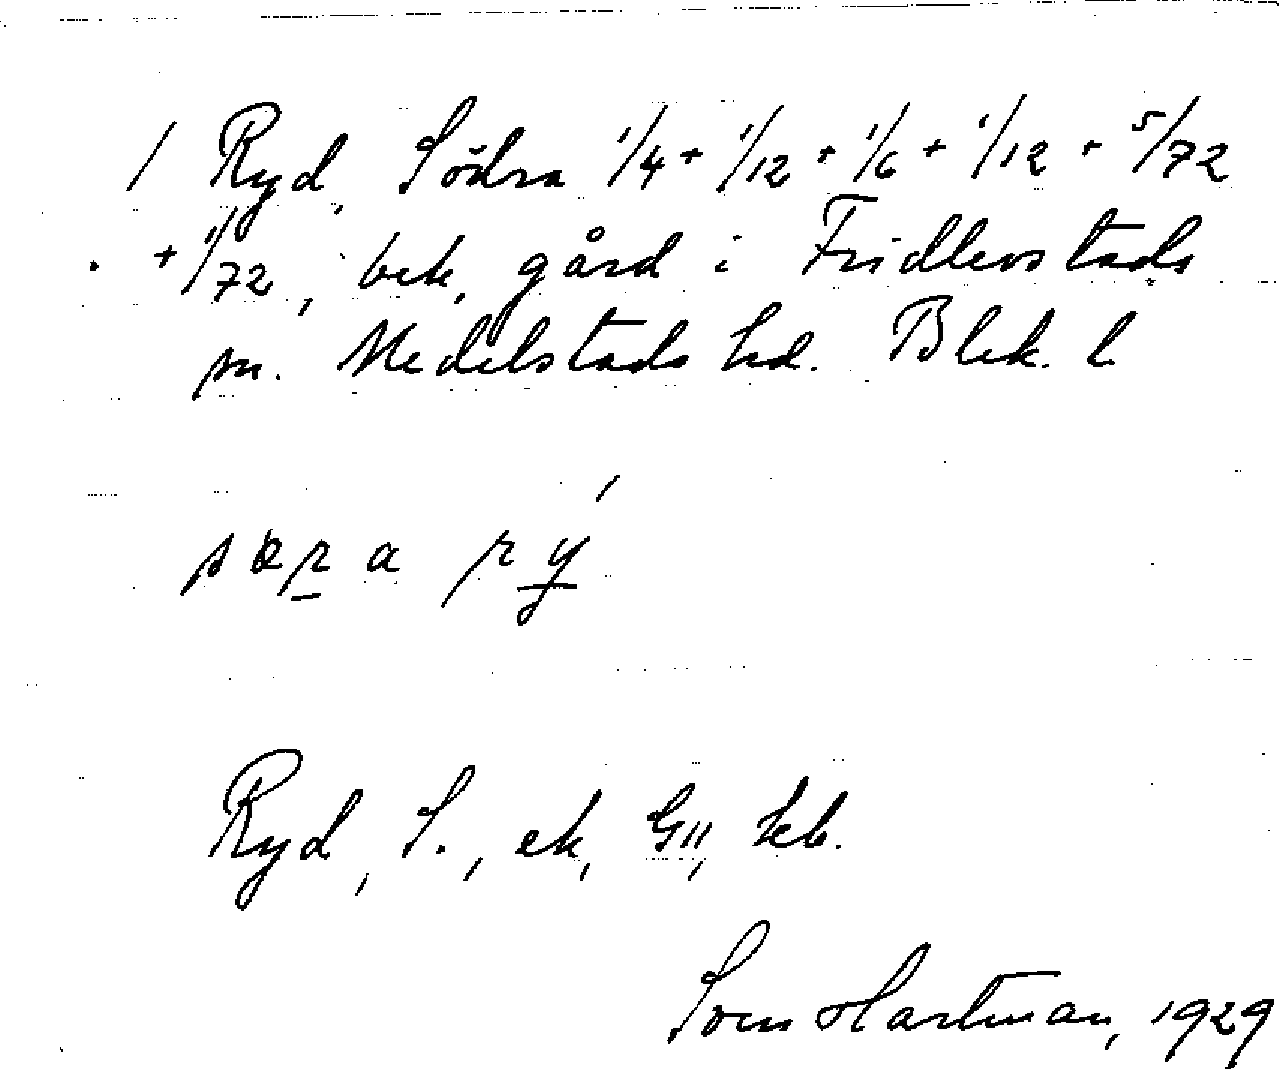 / Ryd, Södra 1/4 + 1/12 + 1/6 + 1/12 + 5/72
+ 1/72, bek, gård i Fridlevstads
sn. Medelstads hd. Blek. l
Ryd, S., ek, G11, kb.
Sven Hartman, 1929